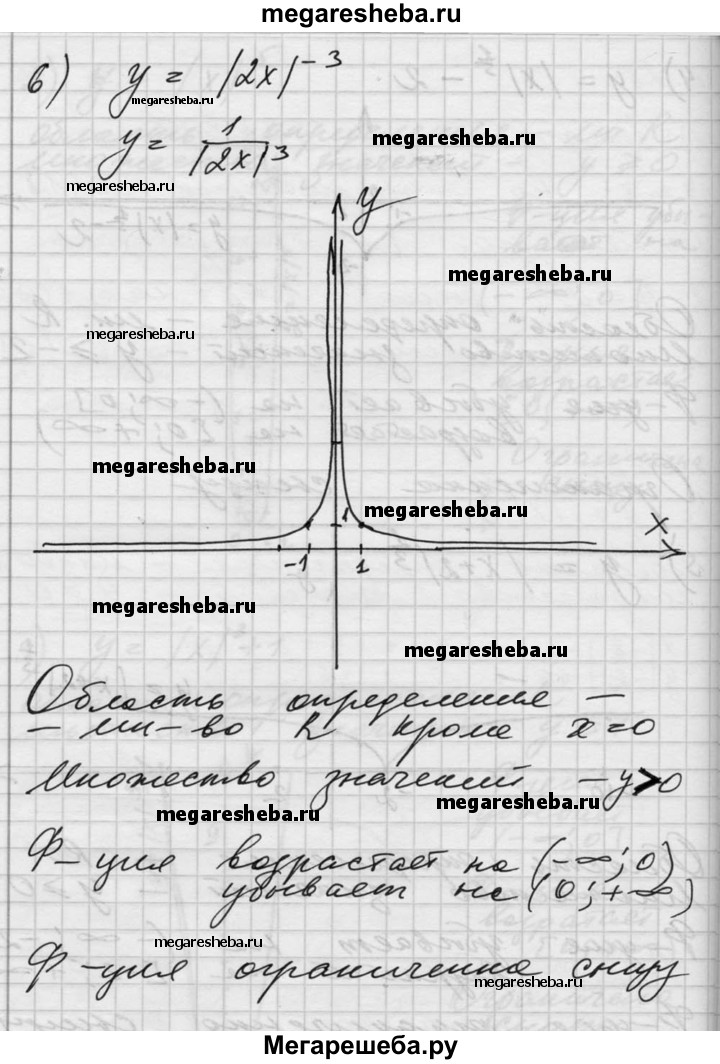 megaresheba.ru
6) y = |2x|⁻³
megaresheba.ru
y = 1/|2x|³
megaresheba.ru
megaresheba.ru
y
megaresheba.ru
megaresheba.ru
megaresheba.ru
1
megaresheba.ru
x
-1
1
megaresheba.ru
megaresheba.ru
Область определения —
— мн-во R кроме x=0
Множество значений — y>0
megaresheba.ru
megaresheba.ru
Ф-ция возрастает на (-∞; 0)
убывает на (0; +∞)
megaresheba.ru
Ф-ция ограниченна снизу
megaresheba.ru
Мегарешеба.ру